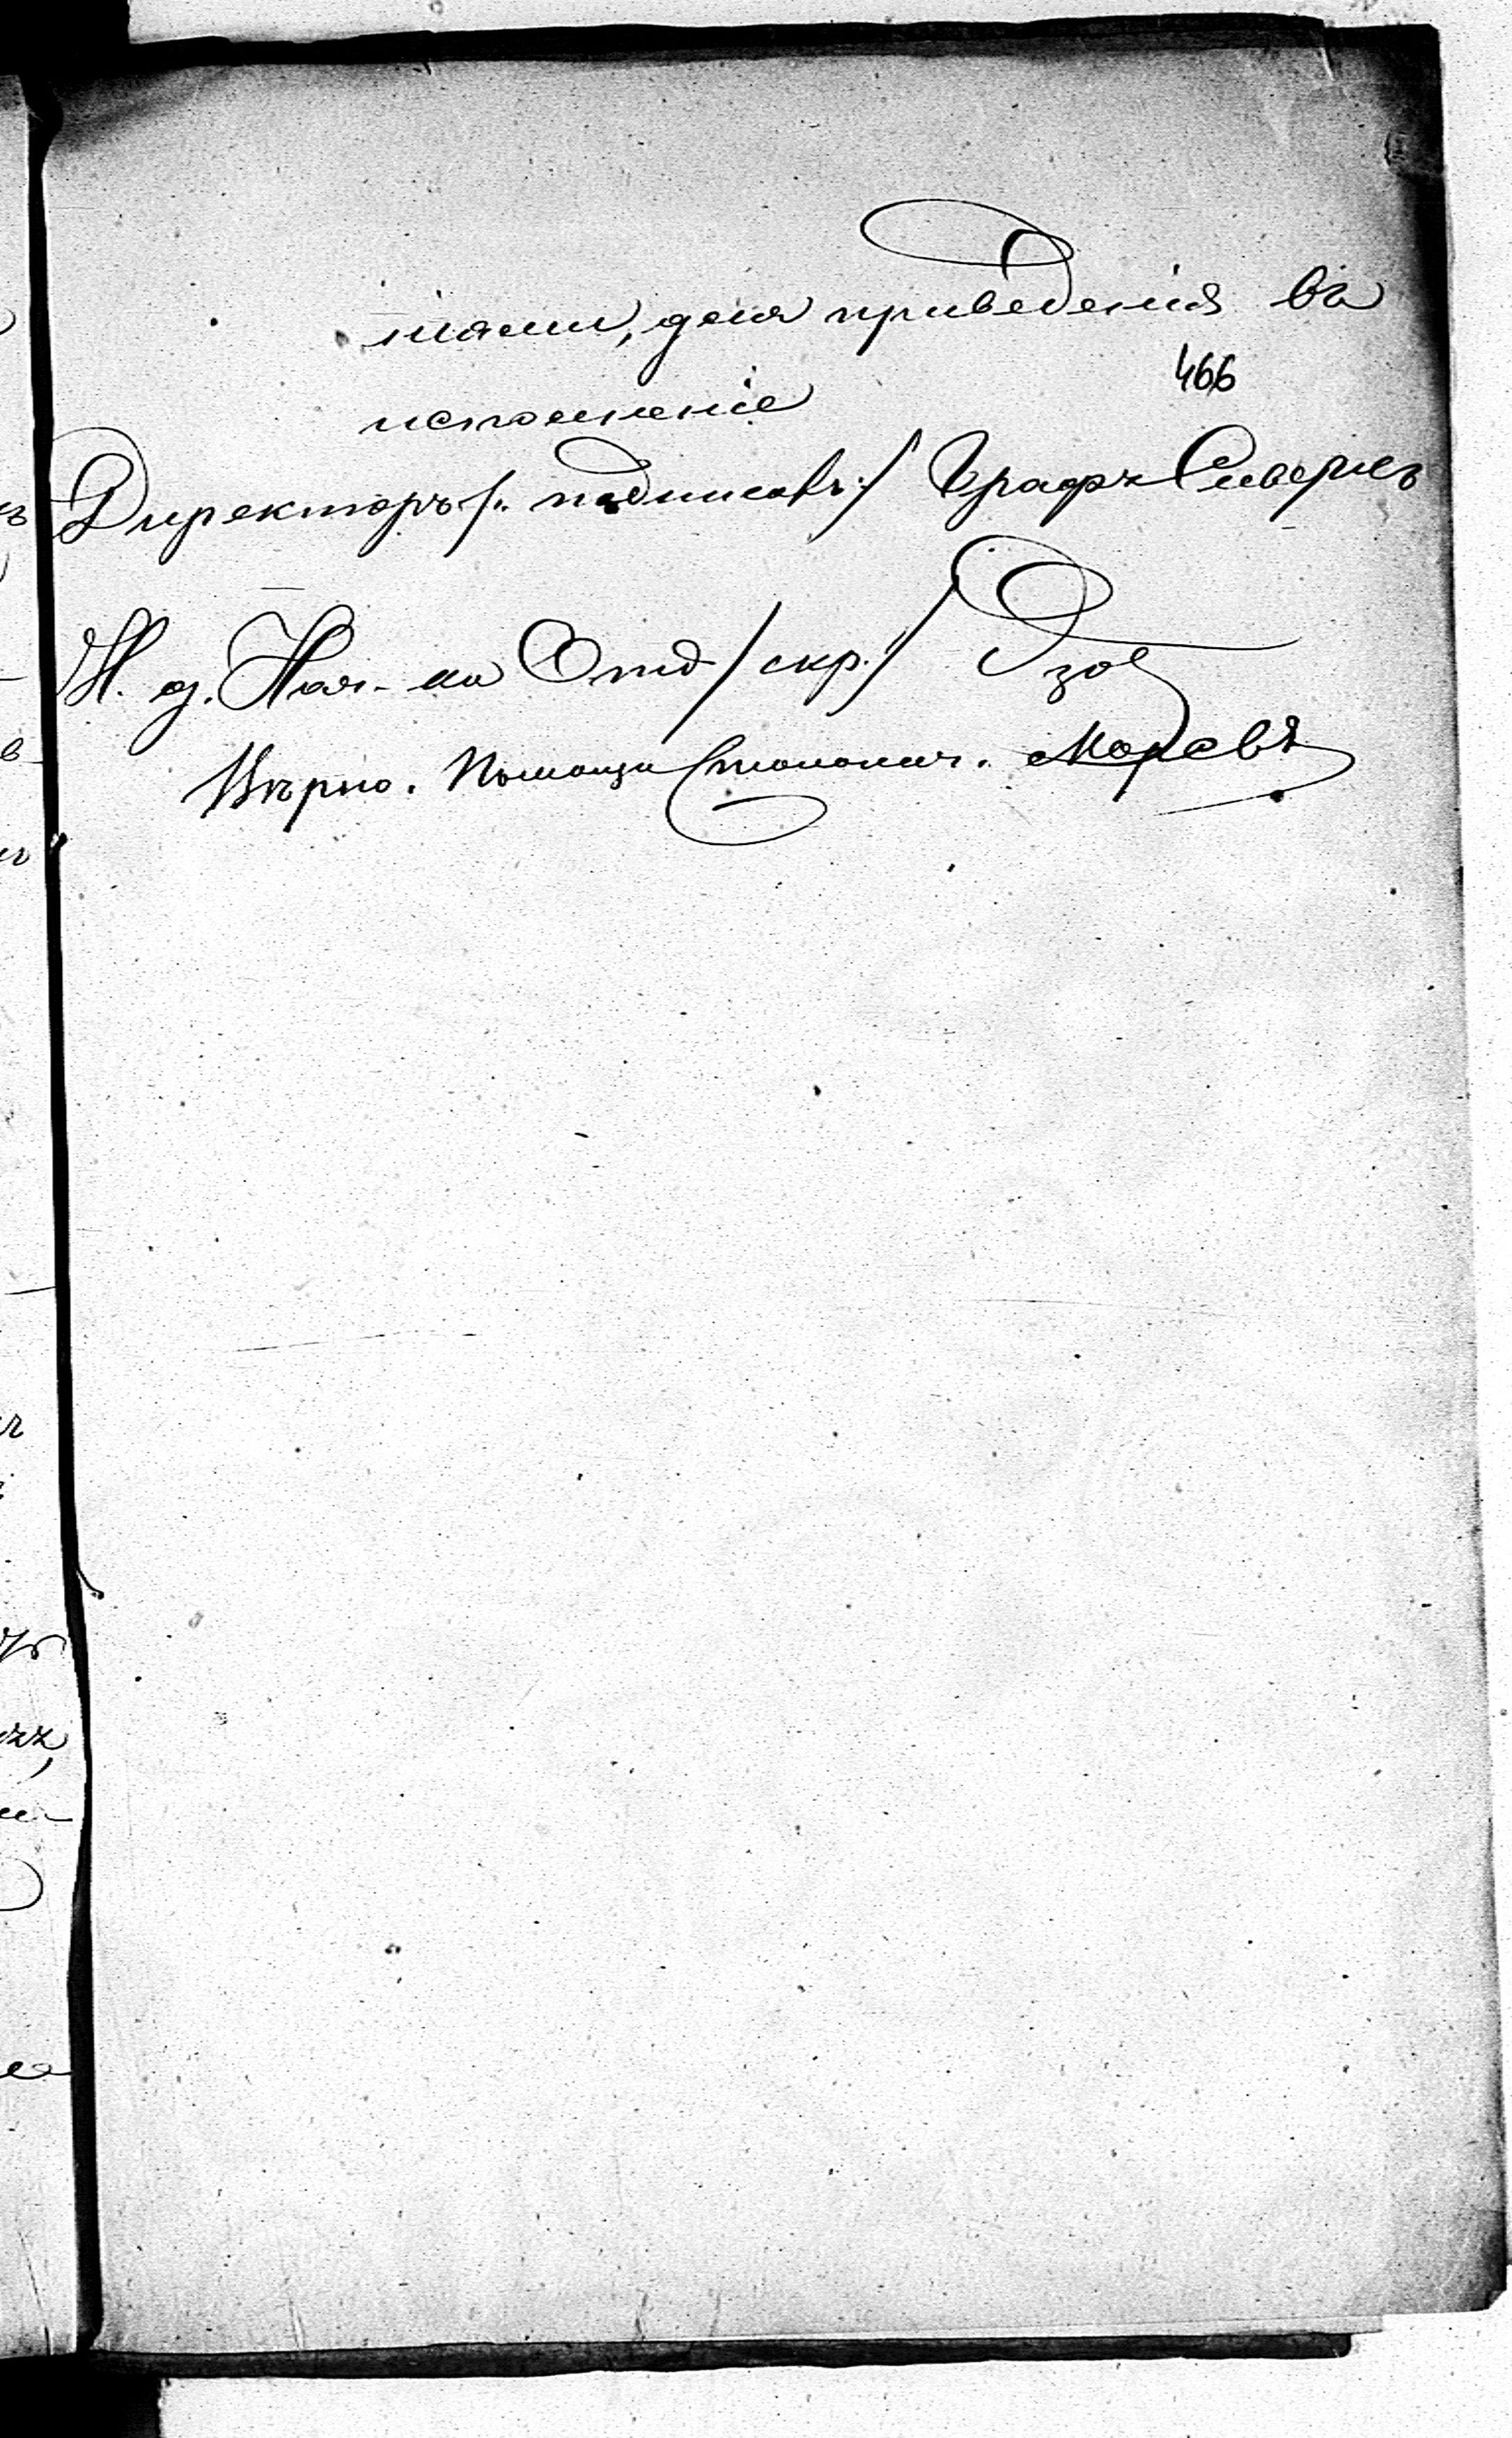 ніями, для приведенія въ
466
исполненіе
Директоръ /: подписалъ :/ Графъ Сиверсъ
И. д. Нач-ка Отд /скр./
Вѣрно. Помощн Столонач.